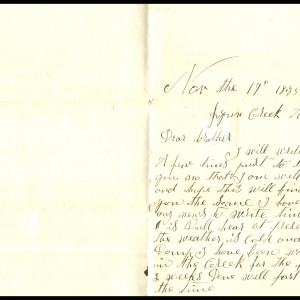 Nov the 19th 1895
Creek
Dear brother
I will write
A few lines just to let
you no that I am well
and hope this will find
you the same I have
any news to write time
is dull hear at present
the weather is Cold and
Damp I have been
in the Creek for the
weeks Done well for
the time